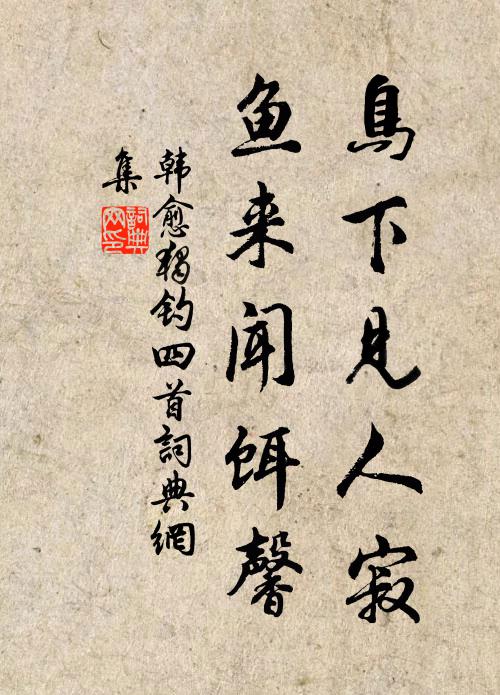 鳥下見人寂
鱼来聞餌馨
韩愈独钓四首詞典網
集
詞典網印